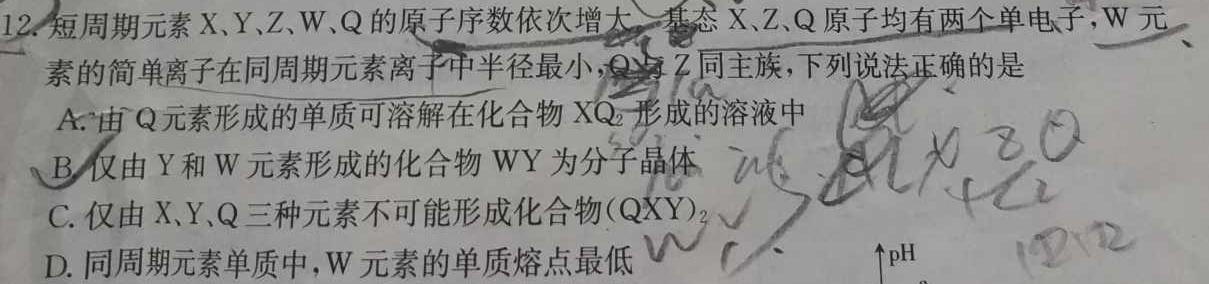 12. 短周期元素 X、Y、Z、W、Q 的原子序数依次增大。基态 X、Z、Q 原子均有两个单电子，W 元
素的简单离子在同周期元素离子中半径最小，Q 与 Z 同主族，下列说法正确的是
A. 由 Q 元素形成的单质可溶解在化合物 XQ₂ 形成的溶液中
B. 仅由 Y 和 W 元素形成的化合物 WY 为分子晶体
C. 仅由 X、Y、Q 三种元素不可能形成化合物(QXY)₂
D. 同周期元素单质中，W 元素的单质熔点最低
pH